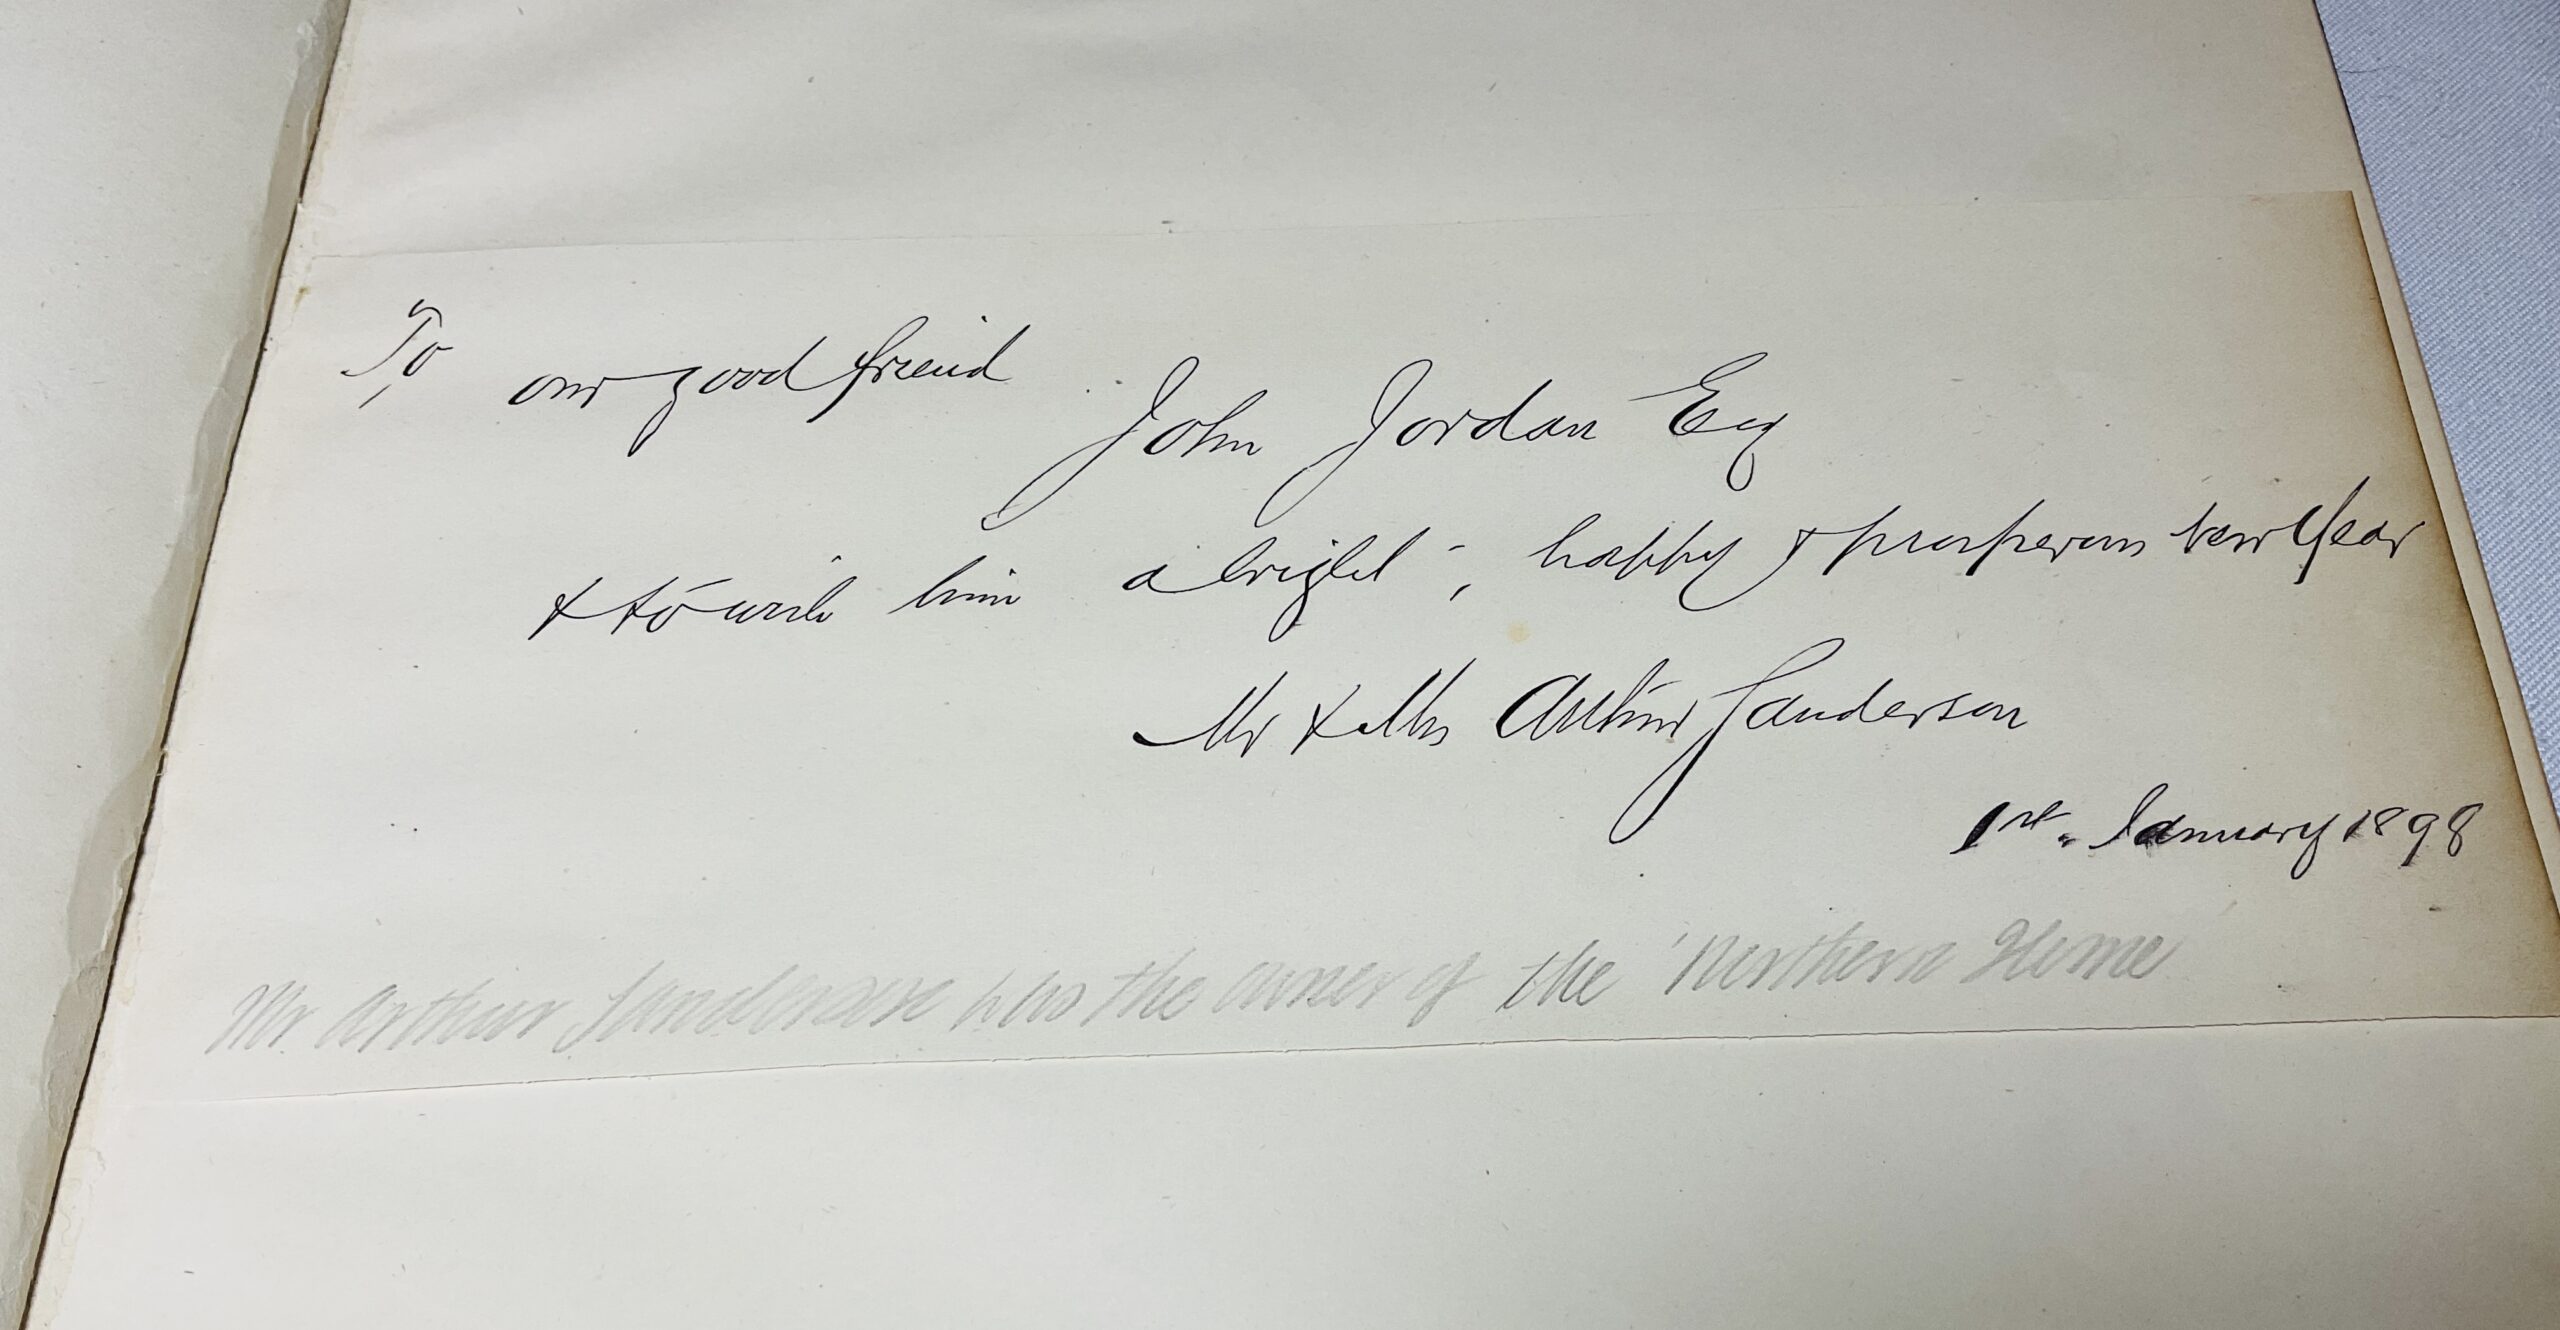 To our good friend
John Jordan Esq
& to wish him a bright, happy & prosperous New Year
Mr & Mrs Arthur Sanderson
1st January 1898
Mr Arthur Sanderson was the owner of the 'Northern Home'